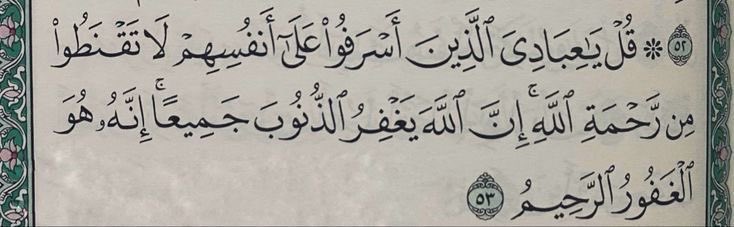 ٥٢ ۞ قُلْ يَـٰعِبَادِىَ ٱلَّذِينَ أَسْرَفُوا۟ عَلَىٰٓ أَنفُسِهِمْ لَا تَقْنَطُوا۟
مِن رَّحْمَةِ ٱللَّهِ ۚ إِنَّ ٱللَّهَ يَغْفِرُ ٱلذُّنُوبَ جَمِيعًا ۚ إِنَّهُۥ هُوَ
ٱلْغَفُورُ ٱلرَّحِيمُ ٥٣